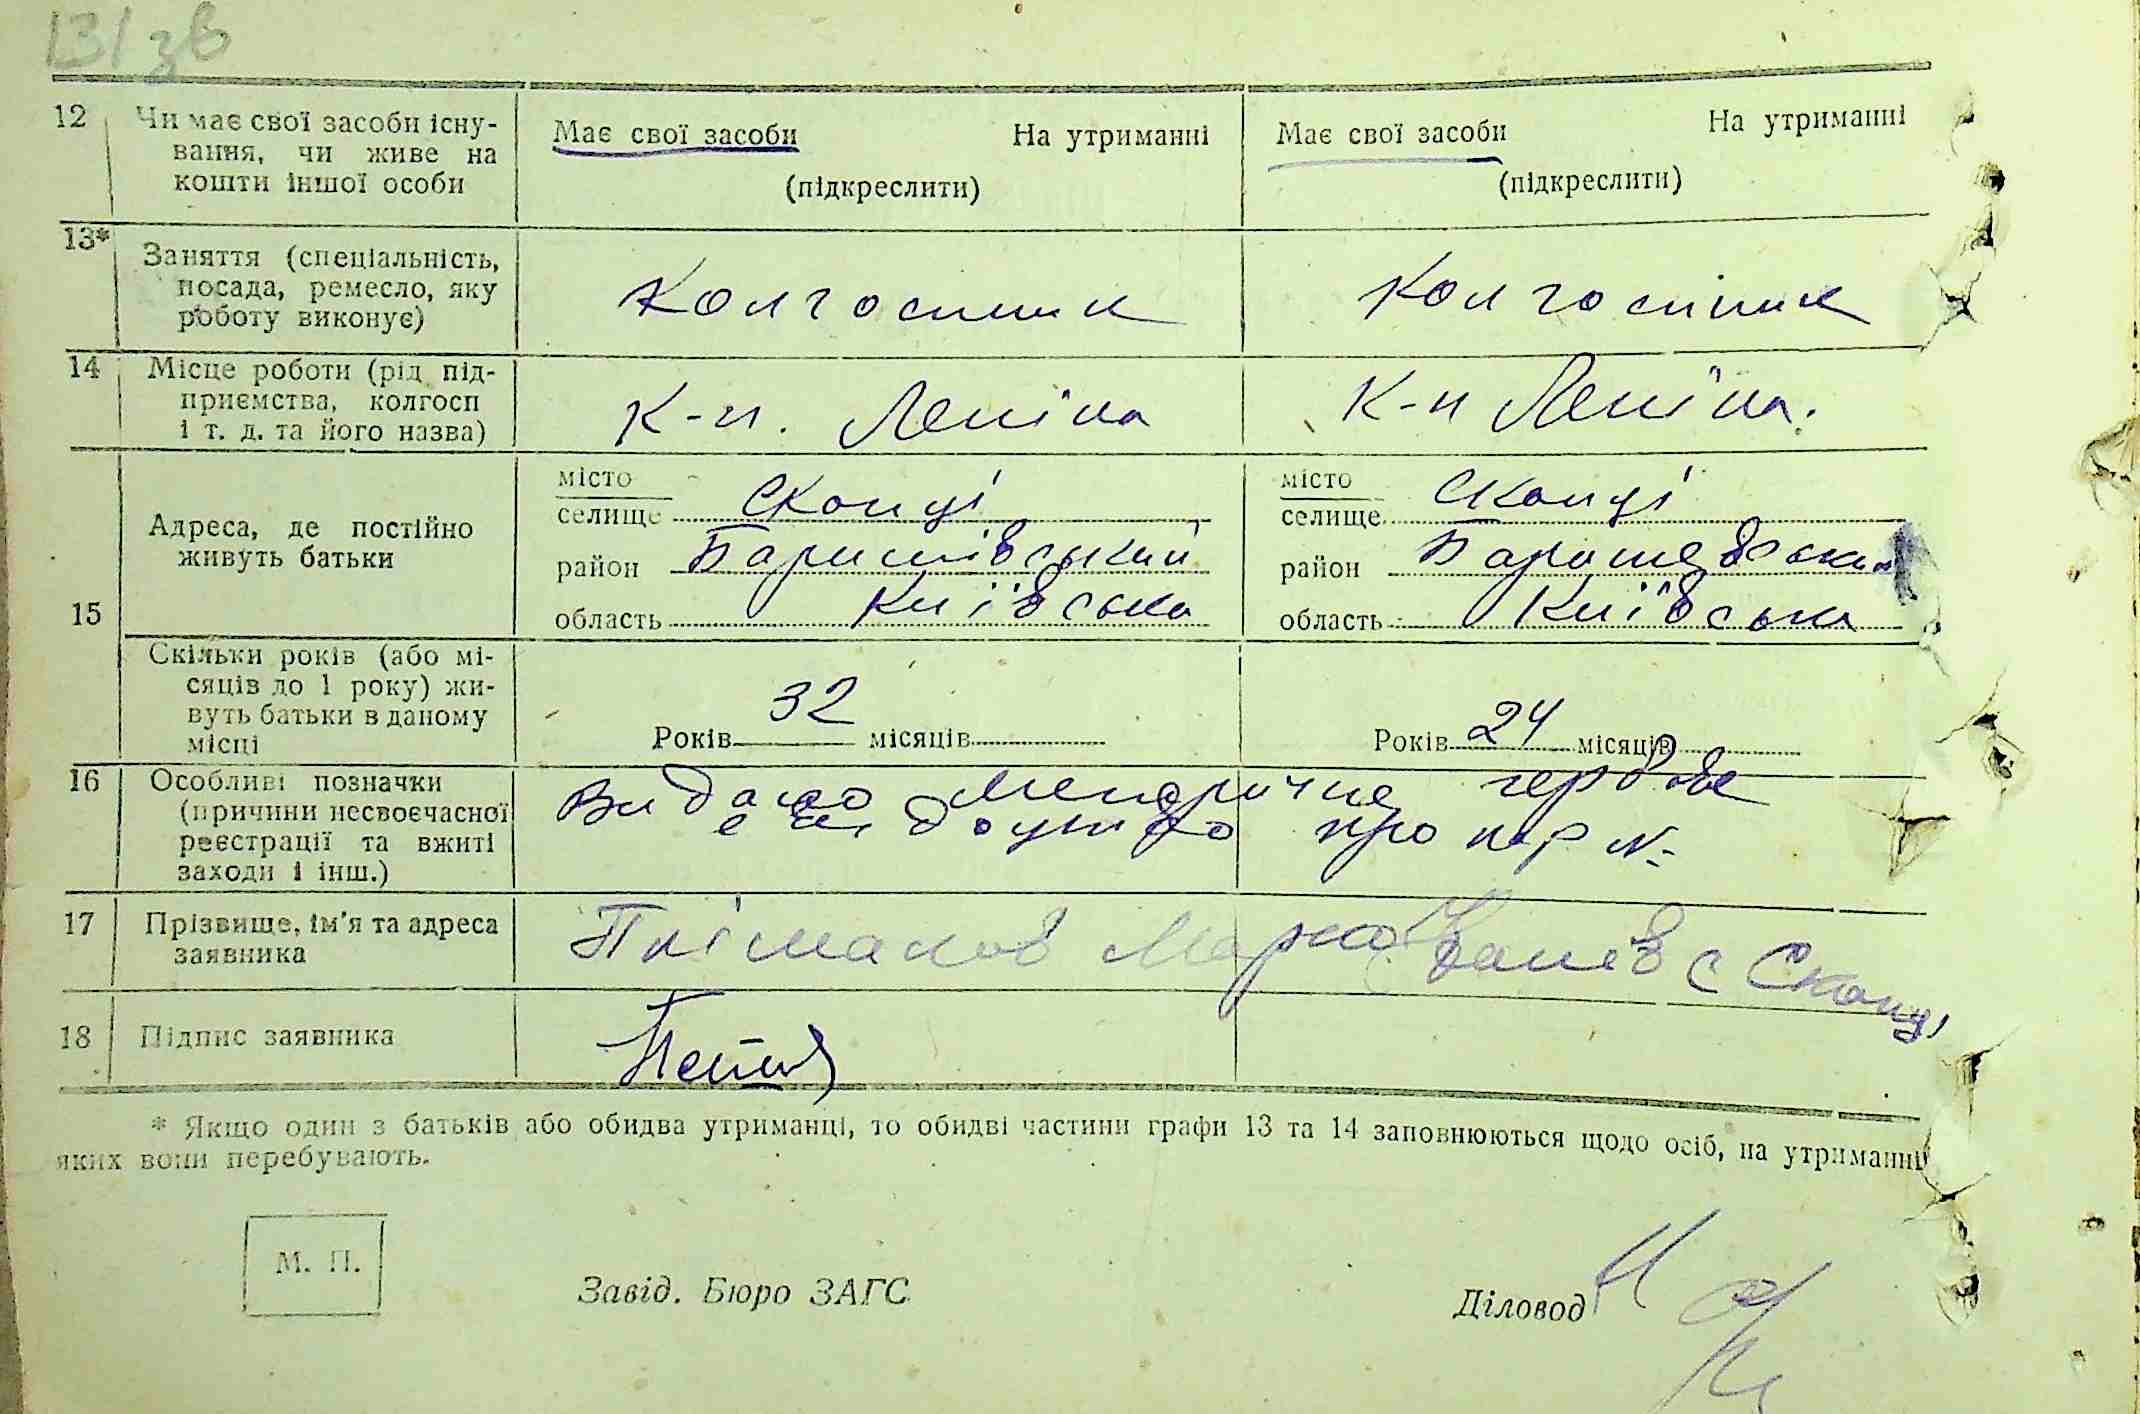 131 зв
12 Чи має свої засоби існу-
вання, чи живе на
кошти іншої особи
Має свої засоби На утриманні
(підкреслити)
Має свої засоби На утриманні
(підкреслити)
13* Заняття (спеціальність,
посада, ремесло, яку
роботу виконує)
Колгоспник
Колгоспник
14 Місце роботи (рід під-
приємства, колгосп
і т. д. та його назва)
К-п. Леніна
К-п Леніна.
15
Адреса, де постійно
живуть батьки
місто
селище Скопці
район Баришівський
область Київська
місто
селище Скопці
район Баришевський
область Київська
Скільки років (або мі-
сяців до 1 року) жи-
вуть батьки в даному
місці
Років 32 місяців
Років 24 місяців
16 Особливі позначки
(причини несвоєчасної
реєстрації та вжиті
заходи і інш.)
Видано гербове
про нар №
17 Прізвище, ім'я та адреса
заявника
с Скопці
18 Підпис заявника
* Якщо один з батьків або обидва утриманці, то обидві частини графи 13 та 14 заповнюються щодо осіб, на утриманні
яких вони перебувають.
М. П.
Завід. Бюро ЗАГС
Діловод